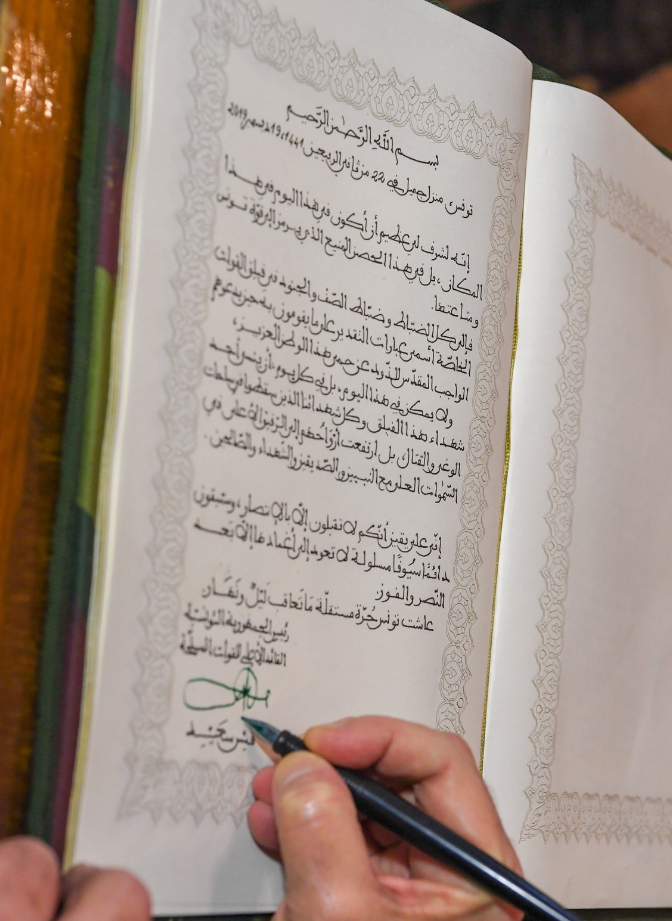 بسم الله الرحمن الرحيم
تونس، منزل جميل في 22 من ربيع الثاني 1441، 19 ديسمبر 2019
إنّه لشرف لي عظيم أن أكون في هذا اليوم في هذا
المكان، بل في هذا الحصن المنيع الذي يرمز إلى قوّة تونس
ومناعتها.
فإلى كل الضبّاط وضبّاط الصّف والجنود في فيلق القوات
الخاصّة أسمى عبارات التقدير على ما يقومون به من
الواجب المقدّس للذّود عن حمى هذا الوطن العزيز،
ولا يمكن في هذا اليوم، بل في كل يوم، أن ينسى أحد
شهداء هذا الفيلق وكل شهدائنا الذين سقطوا في ساحات
الوغى والقتال بل ارتفعت أرواحهم إلى الرفيق الأعلى في
السّموات العلى مع النبيين والصّديقين والشهداء والصّالحين.
إنّي على يقين أنّكم لا تقبلون إلّا بالانتصار، وستبقون
دائمًا سيُوفًا مسلولة لا تعود إلى أغمادها إلّا بعد
النّصر والفوز
عاشت تونس حُرّة مستقلّة مَا تَعاقب لَيْلٌ ونَهَار
رئيس الجمهورية التونسيّة
القائد الأعلى للقوات المسلّحة
قيس سعيّد